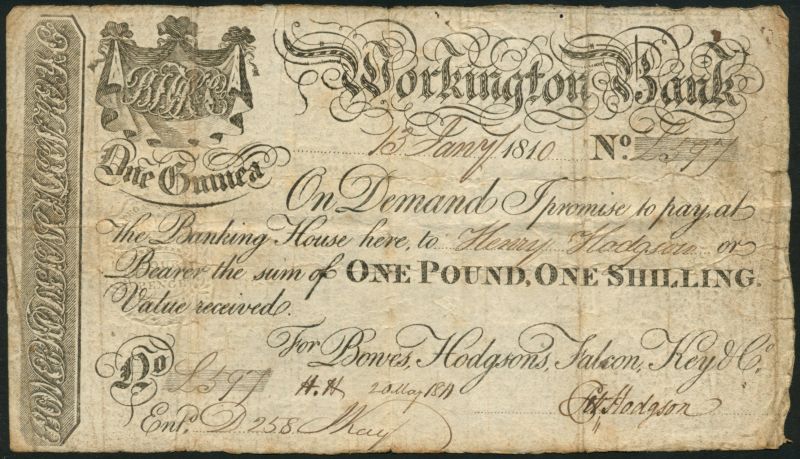 Workington Bank
13 Jany 1810 No. £597
One Guinea
On Demand I promise to pay, at
the Banking House here, to Henry Hodgson or
Bearer the sum of ONE POUND, ONE SHILLING.
Value received.
For Bowes, Hodgsons, Falcon, Key & Co.
No £597
H.H 20 May 1811
Hodgson
Entd. D 258